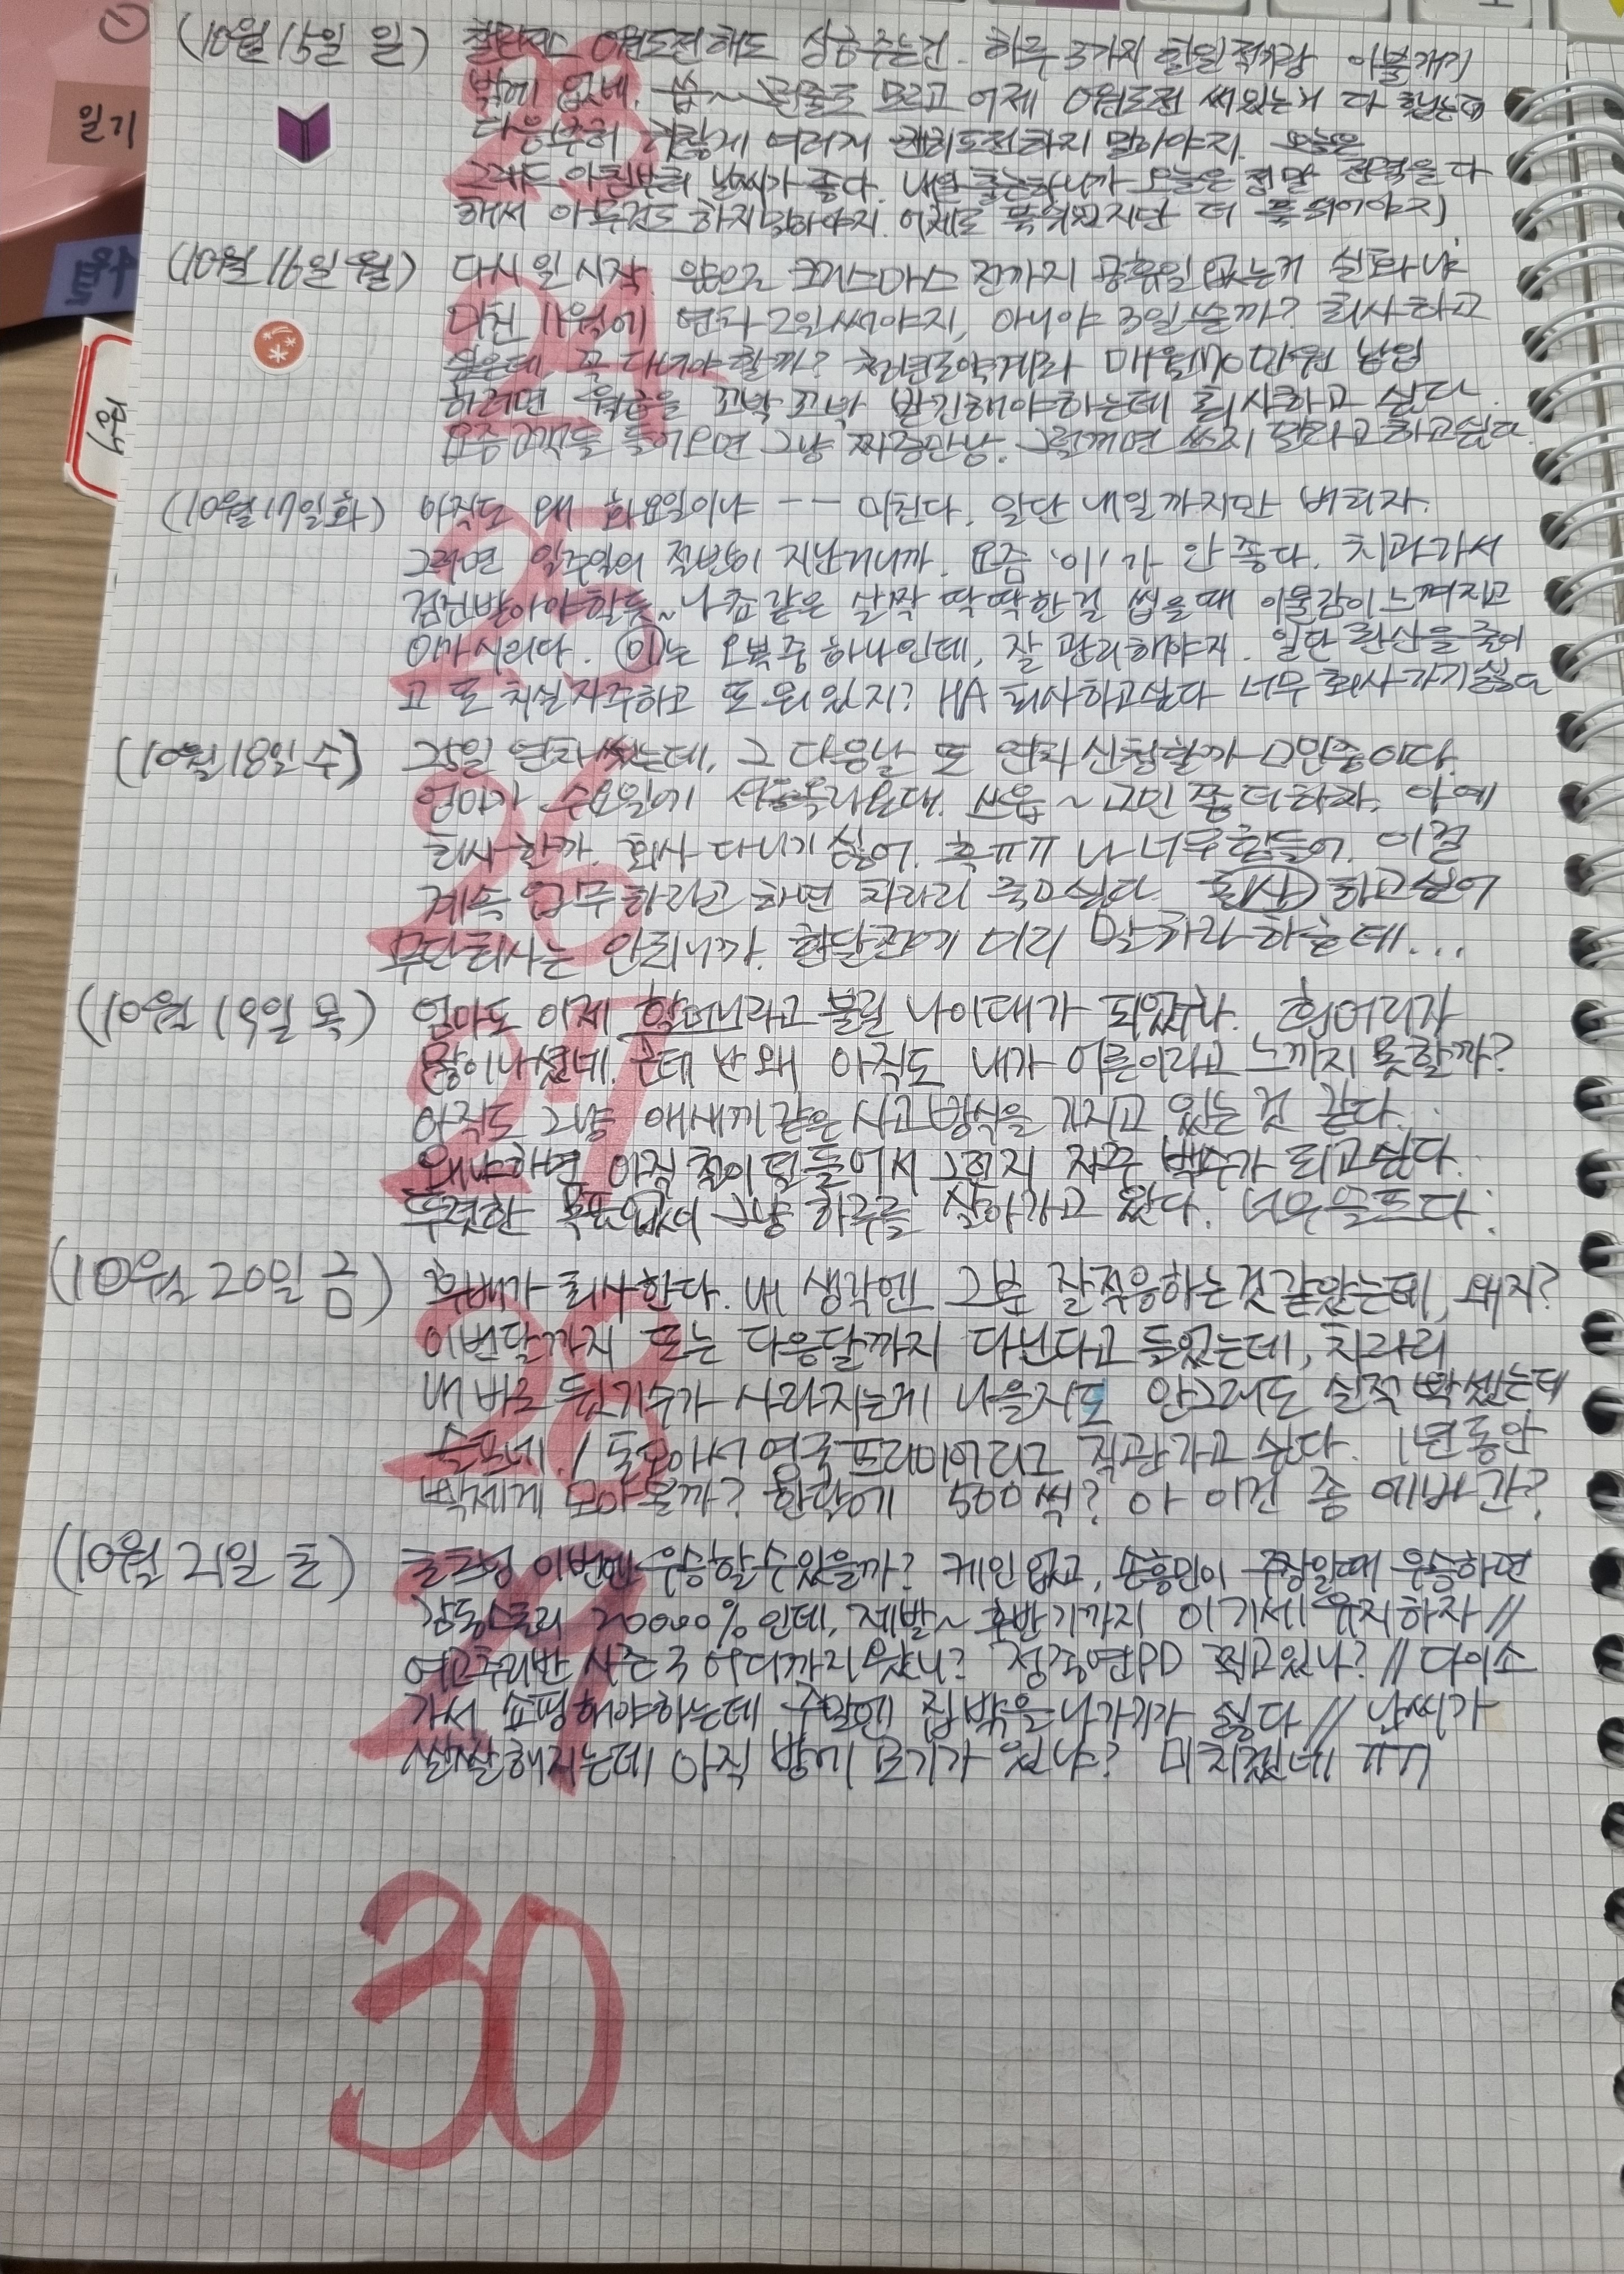 일기
(10월 15일 일) 챌린저스 0원도전해도 상금주는건 하루 3가지 할일 적기랑 이불개기
밖에 없네. 씁~ 그런줄도 모르고 어제 0원도전 써있는거 다 했는데
다음주회 이렇게 여러개 도전하지 말아야지. 오늘은
그래도 아침부터 날씨가 좋다. 내일 출근하니까 오늘은 정말 전력을 다
해서 아무것도 하지말아야지. 어제도 푹 쉬었지만 더 푹 쉬어야지
(10월 16일 월) 다시 일 시작 앞으로 크리스마스 전까지 공휴일 없는거 실화냐
미친 11월에 연차 2일 써야지, 아니야 3일 쓸까? 퇴사하고
싶은데 꼭 다녀야 할까? 청년도약계좌 매월 70만원 납입
하려면 월급을 꼬박 꼬박 받긴해야하는데 퇴사하고 싶다.
요즘 고객들 들어오면 그냥 짜증만남. 그럴꺼면 쓰지 말라고 하고싶다.
(10월 17일 화) 아직도 왜 화요일이냐 -- 미친다. 일단 내일까지만 버티자.
그러면 일주일의 절반이 지난거니까. 요즘 '이'가 안 좋다. 치과가서
검진받아야할듯~ 나쵸같은 살짝 딱딱한걸 씹을때 이물감이 느껴지고
이가 시리다. 이는 오복중 하나인데, 잘 관리해야지. 일단 탄산을 줄이
고 또 치실 자주하고 또 뭐 있지? HA 퇴사하고싶다 너무 회사가기싫다
(10월 18일 수) 25일 연차썼는데, 그 다음날 또 연차 신청할까 고민중이다.
엄마가 수요일에 서울올라온대. 쓰읍~ 고민 좀 더하자, 아예
퇴사 할까. 회사 다니기 싫어. 흑ㅠㅠ 나 너무 힘들어. 이걸
계속 업무하라고 하면 차라리 죽고싶다. 퇴사 하고싶어
무단퇴사는 안되니까. 한달전에 미리 말하라 하는데...
(10월 19일 목) 엄마도 이제 할머니라고 불릴 나이대가 되었구나. 흰머리가
많이 나셨네. 근데 난 왜 아직도 내가 어른이라고 느끼지 못할까?
아직도 그냥 애새끼 같은 사고방식을 가지고 있는 것 같다.
왜냐하면 아직 철이 덜 들어서 그런지 자꾸 백수가 되고싶다.
뚜렷한 목표없이 그냥 하루를 살아가고 있다. 너무슬프다.
(10월 20일 금) 후배가 퇴사한다. 내 생각엔 그분 잘적응하는것 같았는데, 왜지?
이번달까지 또는 다음달까지 다닌다고 들었는데, 차라리
내 바로 뒷기수가 사라지는게 나을지도 안그래도 실적 빡셌는데
슬프네. / 돈모아서 영국프리미어리그 직관가고 싶다. 1년동안
빡세게 모아볼까? 한달에 500씩? 아 이건 좀 에바 간?
(10월 21일 토) 토트넘 이번엔 우승할 수 있을까? 케인없고, 손흥민이 주장일때 우승하면
감동스토리 20000% 인데, 제발~ 후반기까지 이 기세 유지하자 //
여고추리반 시즌3 어디까지 왔니? 정종연PD 찍고있나? // 다이소
가서 쇼핑해야하는데 주말엔 집밖을 나가기가 싫다 // 날씨가
쌀쌀해지는데 아직 방에 모기가 있냐? 미치겠네 ㅠㅠ
23
24
25
26
27
28
29
30